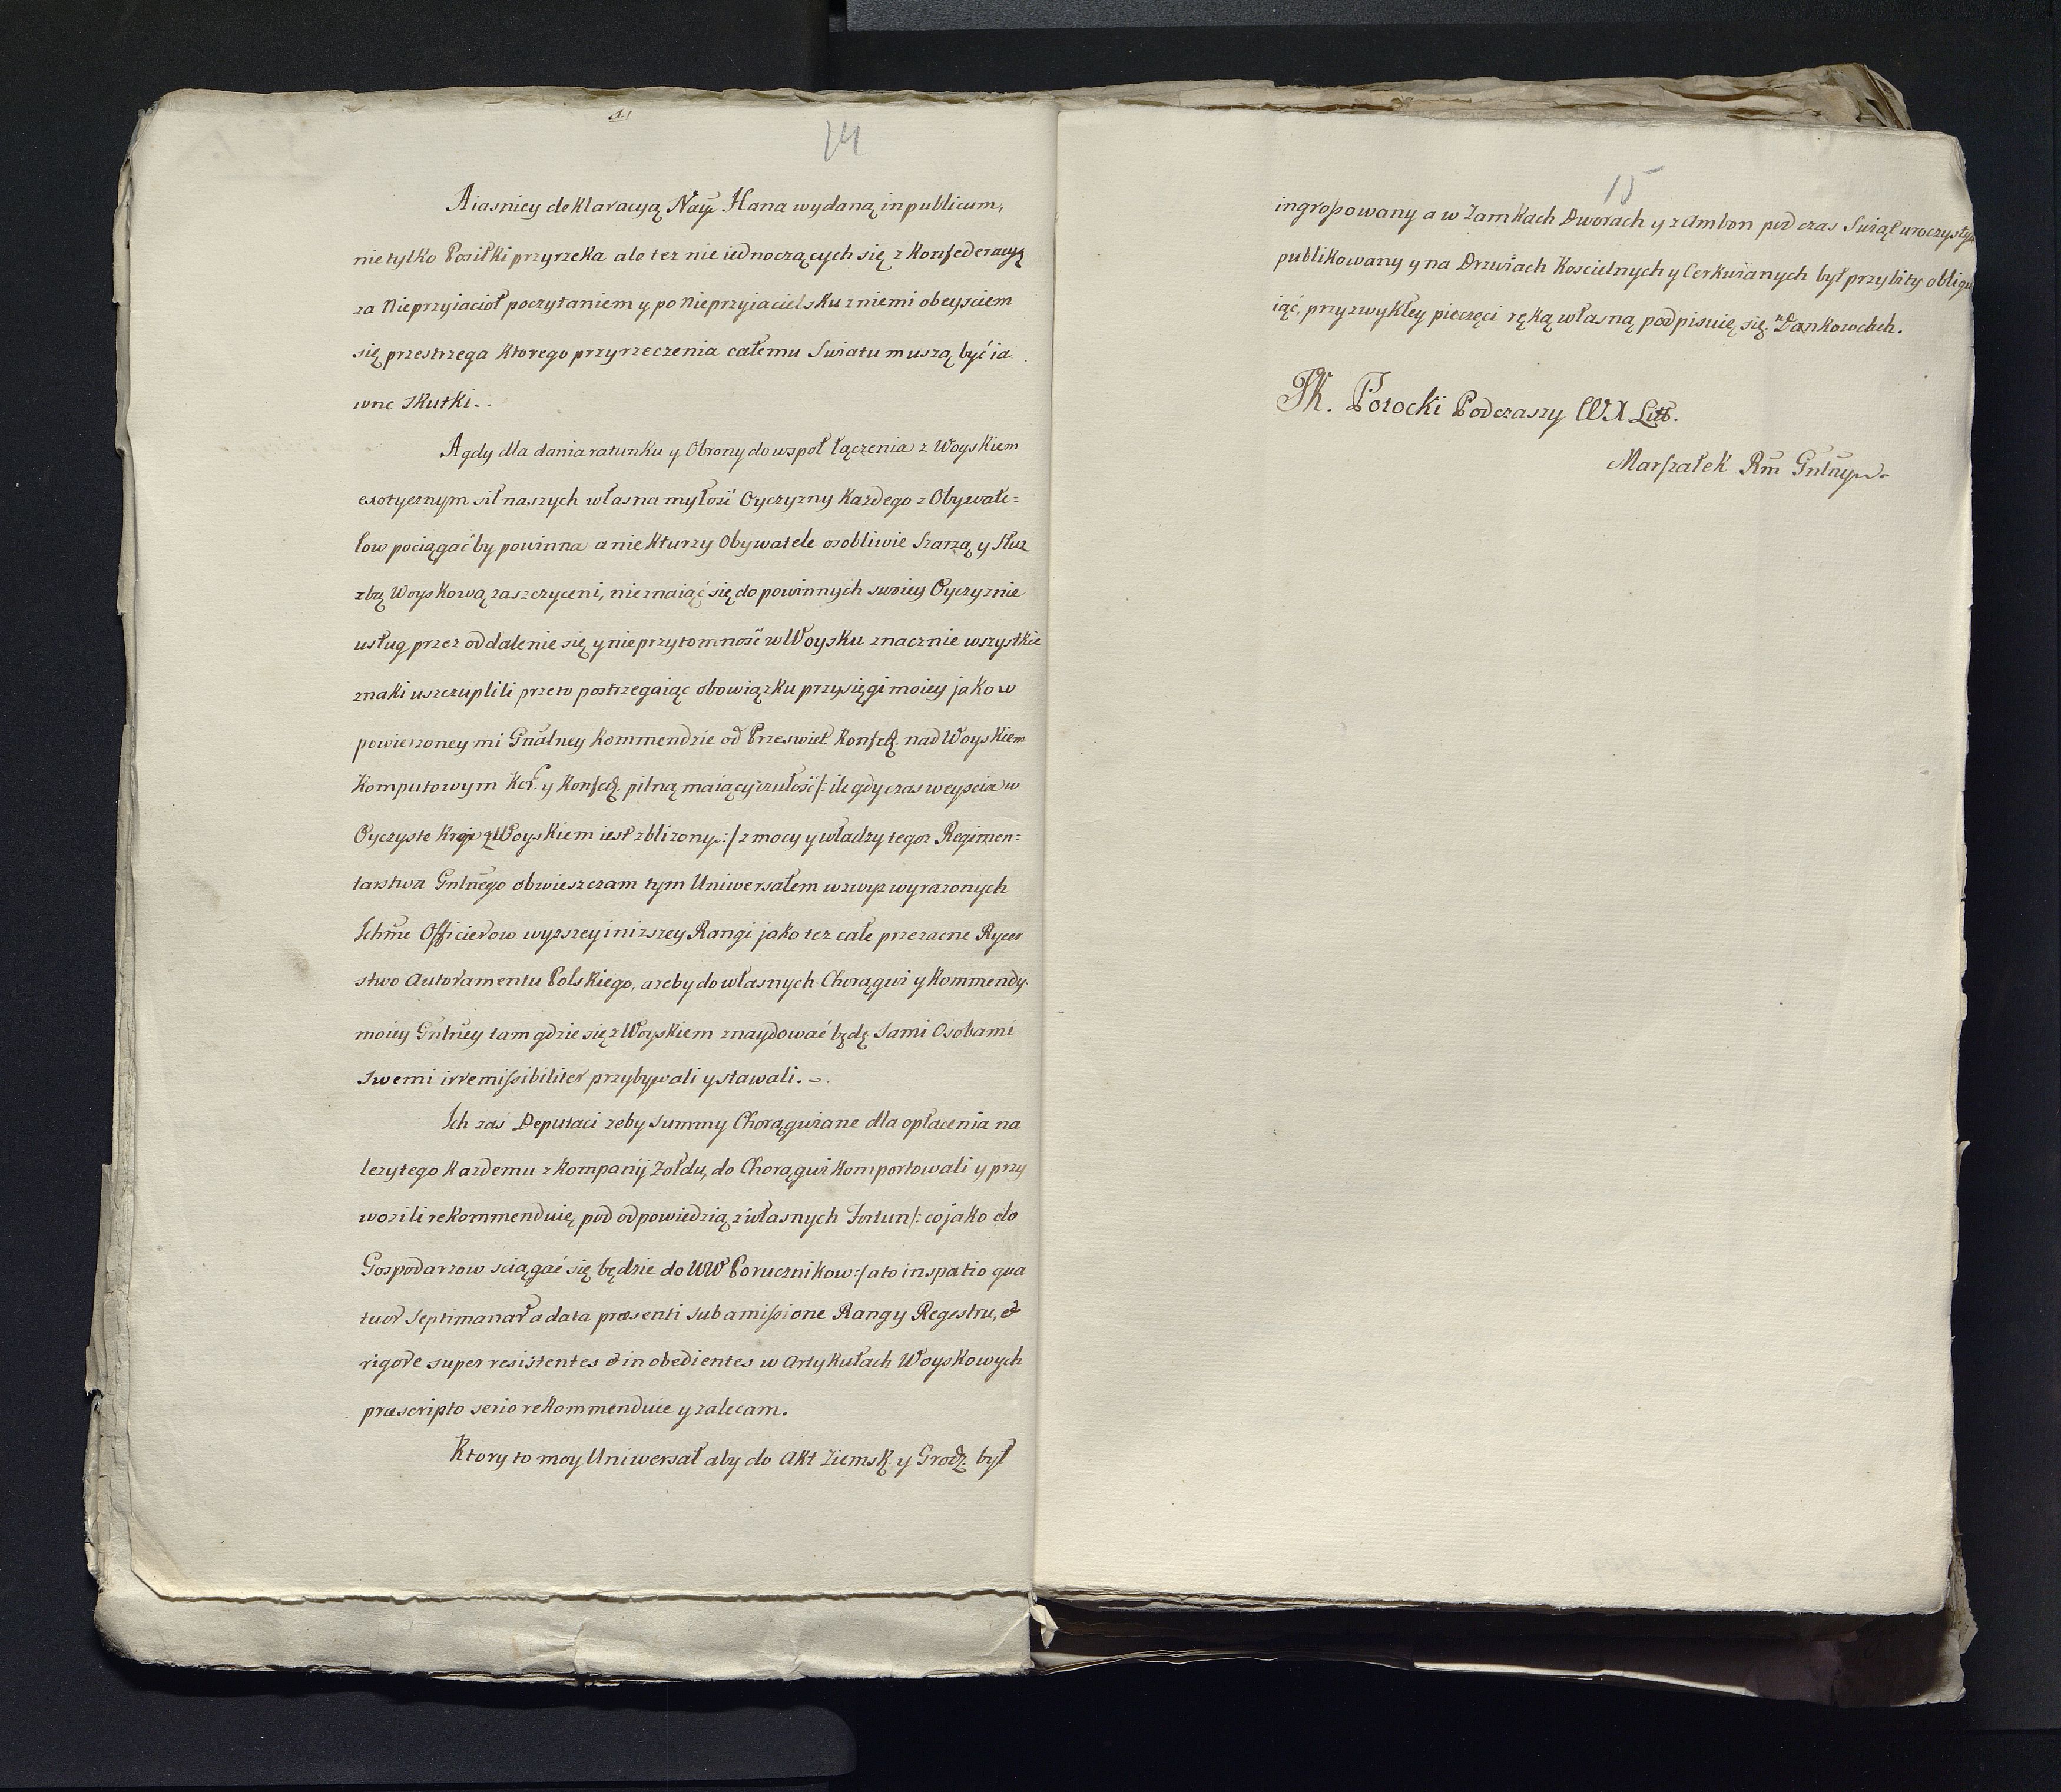 14
Aiasniey deklaracyą Nay Hana wydaną in publicum,
nie tylko Posiłki przyrzeka ale tez nie iednoczących się z Konfederacyą
za Nieprzyiacioł poczytaniem y po Nieprzyiacielsku z niemi obeysciem
się przestrzega Ktorego przyrzeczenia całemu Swiatu muszą być ia
wne Skutki.
A gdy dla dania ratunku y Obrony do wspoł łączenia z Woyskiem
exotycznym sił naszych własna myłość Oyczyzny Kazdego z Obywate=
low pociągać by powinna a nie Kturzy Obywatele osobliwie Szarzą y Słuz
zbą Woyskową zaszczyceni, nie znaiąć się do powinnych swoiey Oyczyznie
usług przez oddalenie się y nieprzytomność w Woysku znacznie wszystkie
znaki uszczuplili przeto postrzegaiąc obowiązku przysięgi moiey jako w
powierzoney mi Gnalney Kommendzie od Przeswiet. Konfed. nad Woyskiem
Komputowym Kor. y Konfed. pilną maiący czułość /: ile gdy czas weyscia w
Oyczyste Kraje z Woyskiem iest zblizony :/ z mocy y władzy tegoz Regimen=
tarstwa Gnlnego obwieszczam tym Uniwersałem wzwyz wyrazonych
Ichme Officierow wyzszey i nizszey Rangi jako tez całe przezacne Rycer
stwo Autoramentu Polskiego, azeby do własnych Chorągwi y Kommendy
moiey Gnlney tam gdzie się z Woyskiem znaydować będę Sami Osobami
Swemi irremissibiliter przybywali y stawali.
Ich zas Deputaci zeby Summy Chorągwiane dla opłacenia na
lezytego Kazdemu z Kompanij Zołdu, do Chorągwi Komportowali y przy
wozili rekommenduię pod odpowiedzią z własnych Fortun /: co jako do
Gospodarzow sciągać się będzie do WW Porucznikow :/ a to in spatio qua
tuor Septimanar a data præsenti sub amissione Rangy Regestru, et
rigore super resistentes et in obedientes w Artykułach Woyskowych
præscripto serio rekommenduie y zalecam.
Ktory to moy Uniwersał aby do Akt Ziemsk. y Grodz. był
15
ingrossowany a w Zamkach Dworach y z Ambon pod czas Swiąt uroczysty
publikowany y na Drzwiach Koscielnych y Cerkwianych był przybity obligu
iąć, przy zwykłey pieczęci ręką własną podpisuię się. w Dankowcach.
Potocki Podczaszy WX Litt.
Marszałek Rm Gnlny